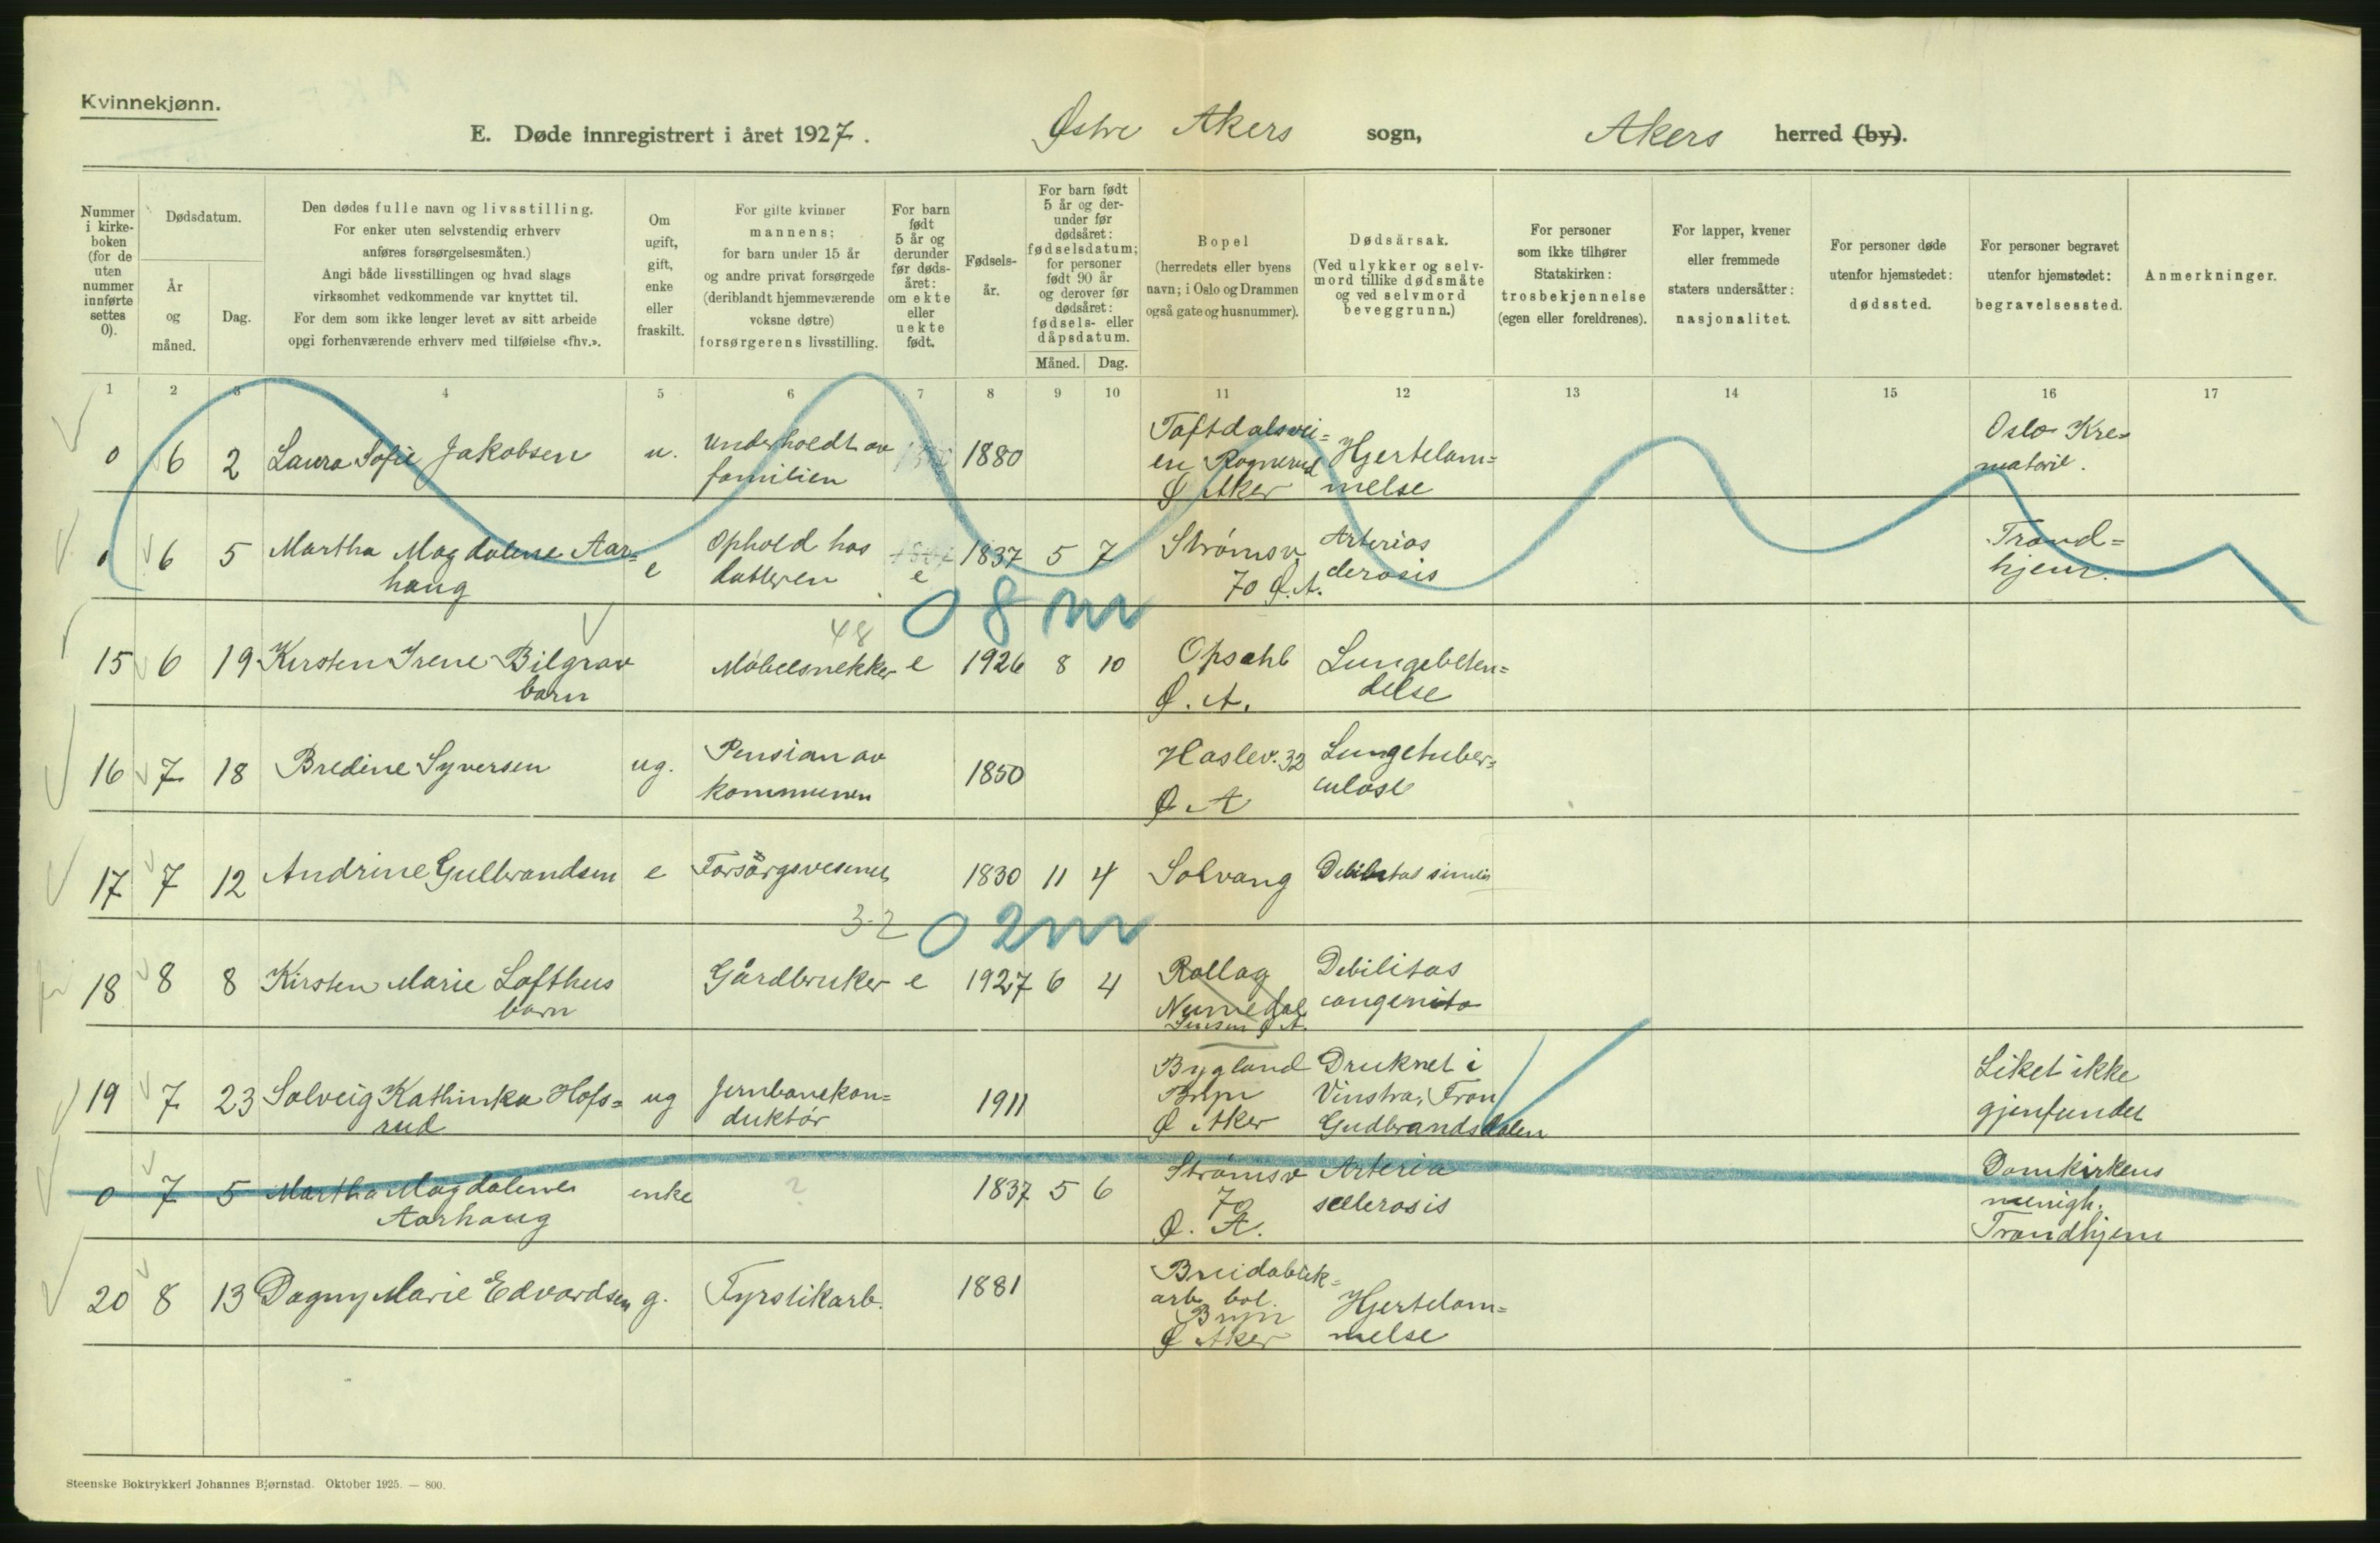 Kvinnekjønn.
E. Døde innregistrert i året 1927. Østre Akers sogn, Akers herred (by).
Nummer i kirke-boken (for de uten nummer innførte settes 0).
Dødsdatum.
År og måned.
Dag.
Den dødes fulle navn og livsstilling.
For enker uten selvstendig erhverv
anføres forsørgelsesmåten.)
Angi både livsstillingen og hvad slags
virksomhet vedkommende var knyttet til.
For dem som ikke lenger levet av sitt arbeide
opgi forhenværende erhverv med tilføielse «fhv.».
Om ugift, gift, enke eller fraskilt.
For gifte kvinner
mannens;
for barn under 15 år
og andre privat forsørgede
(deriblandt hjemmeværende
voksne døtre)
forsørgerens livsstilling.
For barn født 5 år og derunder før døds-året: om ekte eller uekte født.
Fødsels-år.
For barn født
5 år og der-
under før
dødsåret:
fødselsdatum;
for personer
født 90 år
og derover før
dødsåret:
fødsels- eller
dåpsdatum.
Måned. Dag.
Bopel
(herredets eller byens
navn; i Oslo og Drammen
også gate og husnummer).
Dødsårsak.
(Ved ulykker og selv-
mord tillike dødsmåte
og ved selvmord
beveggrunn.)
For personer
som ikke tilhører
Statskirken:
trosbekjennelse
(egen eller foreldrenes).
For lapper, kvener
eller fremmede
staters undersåtter:
nasjonalitet.
For personer døde
utenfor hjemstedet:
dødssted.
For personer begravet
utenfor hjemstedet:
begravelsessted.
Anmerkninger.
1 2 3 4 5 6 7 8 9 10 11 12 13 14 15 16 17
0 6 2 Laura Sofie Jakobsen u. Underholdt av
familien
1880
Taftdalsvei=
en Rognerud
Ø Aker
Hjertelam=
melse
Oslo Kre=
matorie.
0 6 5 Martha Magdalene Aar=
haug
e
Ophold hos
datteren
e
1837 5 7
Strømsv
70 Ø.A.
Arterios
clerosis
Trond=
hjem.
0 8 m
48
15 6 19 Kirsten Irene Bilgrav
barn
Møbelsnekker e 1926 8 10
Opsahl
Ø. A.
Lungebeten=
delse
16 7 18 Bredine Syversen ug.
Pension av
kommunen
1850
Haslev. 32
Ø A
Lungetuber=
culose
17 7 12 Andrine Gulbrandsen e Forsørgsvesenet 1830 11 4 Solvang Debilitas
32
0 2 m
18 8 8 Kirsten Marie Lofthus
barn
Gårdbruker e 1927 6 4
Rollag
Numedal
Ø A.
Debilitas
congenita
19 7 23 Solveig Kathinka Hofs=
rud
ug
Jernbanekon=
duktør
1911
Bygland
Bryn
Ø Aker
Druknet i
Vinstra, Fron
Gudbrandsdalen
Liket ikke
gjenfundet
0 7 5 Martha Magdalene
Aarhaug
enke
?
1837 5 6
Strømsv
70
Ø. A.
Arteria
scelerosis
Domkirkens
menigh.
Trondhjem
20 8 13 Dagny Marie Edvardsen g. Fyrstikarb. 1881
Breidablik=
arb. bol.
Bryn
Ø Aker
Hjertelam=
melse
Steenske Boktrykkeri Johannes Bjørnstad. Oktober 1925. — 800.